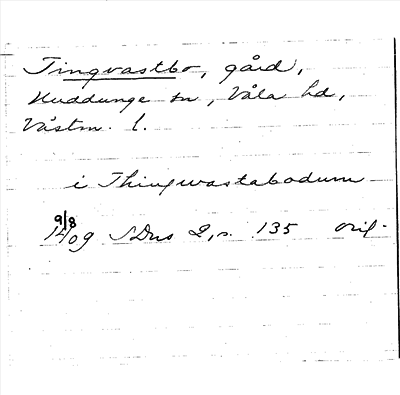 Tingvastbo, gård,
Huddunge sn, Våla hd,
Västm. l.
i Thingwastabodum
9/8
1409 SDns 2, s. 135 orig.